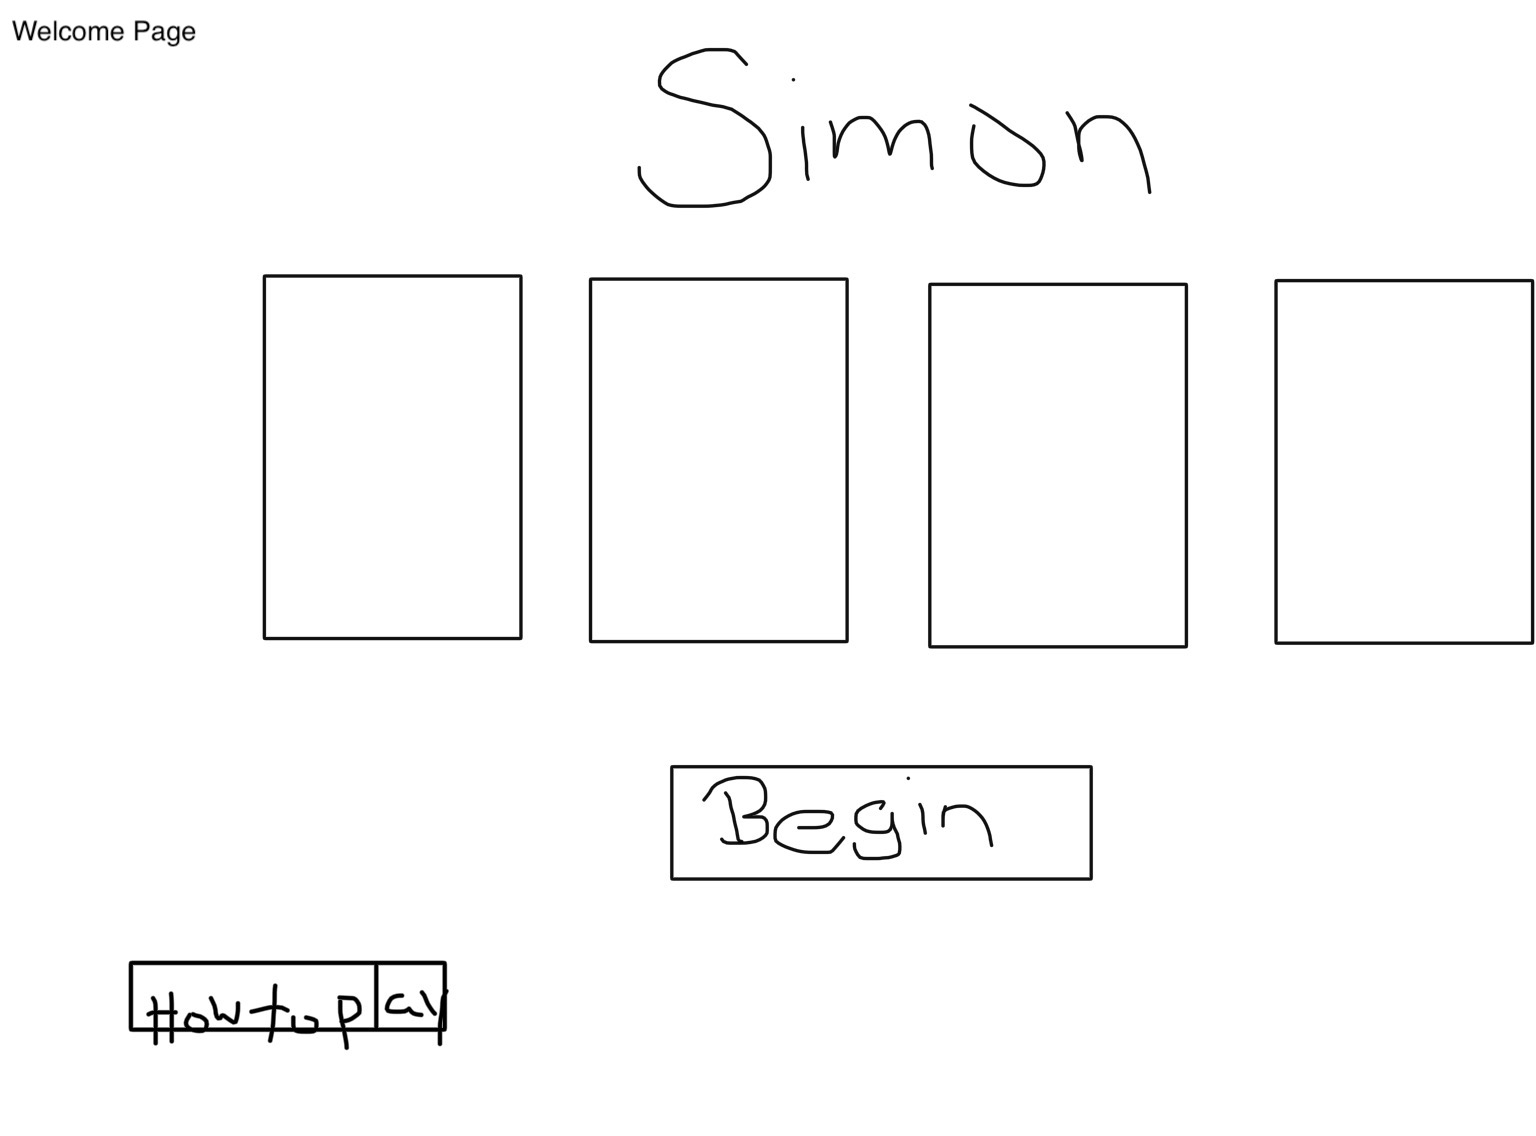 Welcome Page
Simon
Begin
How to play